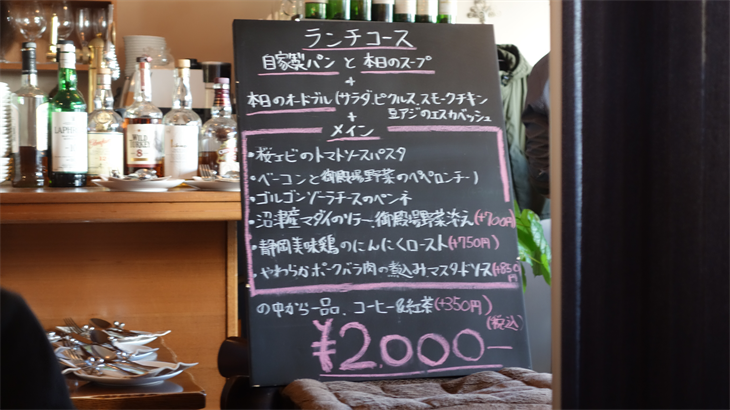 ランチコース
自家製パンと本日のスープ
+
本日のオードブル(サラダ.ピクルス.スモークチキン
豆アジのエスカベッシュ
+
メイン
・桜エビのトマトソースパスタ
・ベーコンと御殿場野菜のペペロンチーノ
・ゴルゴンゾーラチーズのペンネ
・沼津産マダイのソテー、御殿場野菜添え(+700円)
・静岡美味鶏のにんにくロースト(+750円)
・やわらかポークバラ肉の煮込みマスタードソース(+850円)
の中から一品、コーヒーor紅茶(+350円)
(税込)
¥2.000-
WILD TURKEY
8